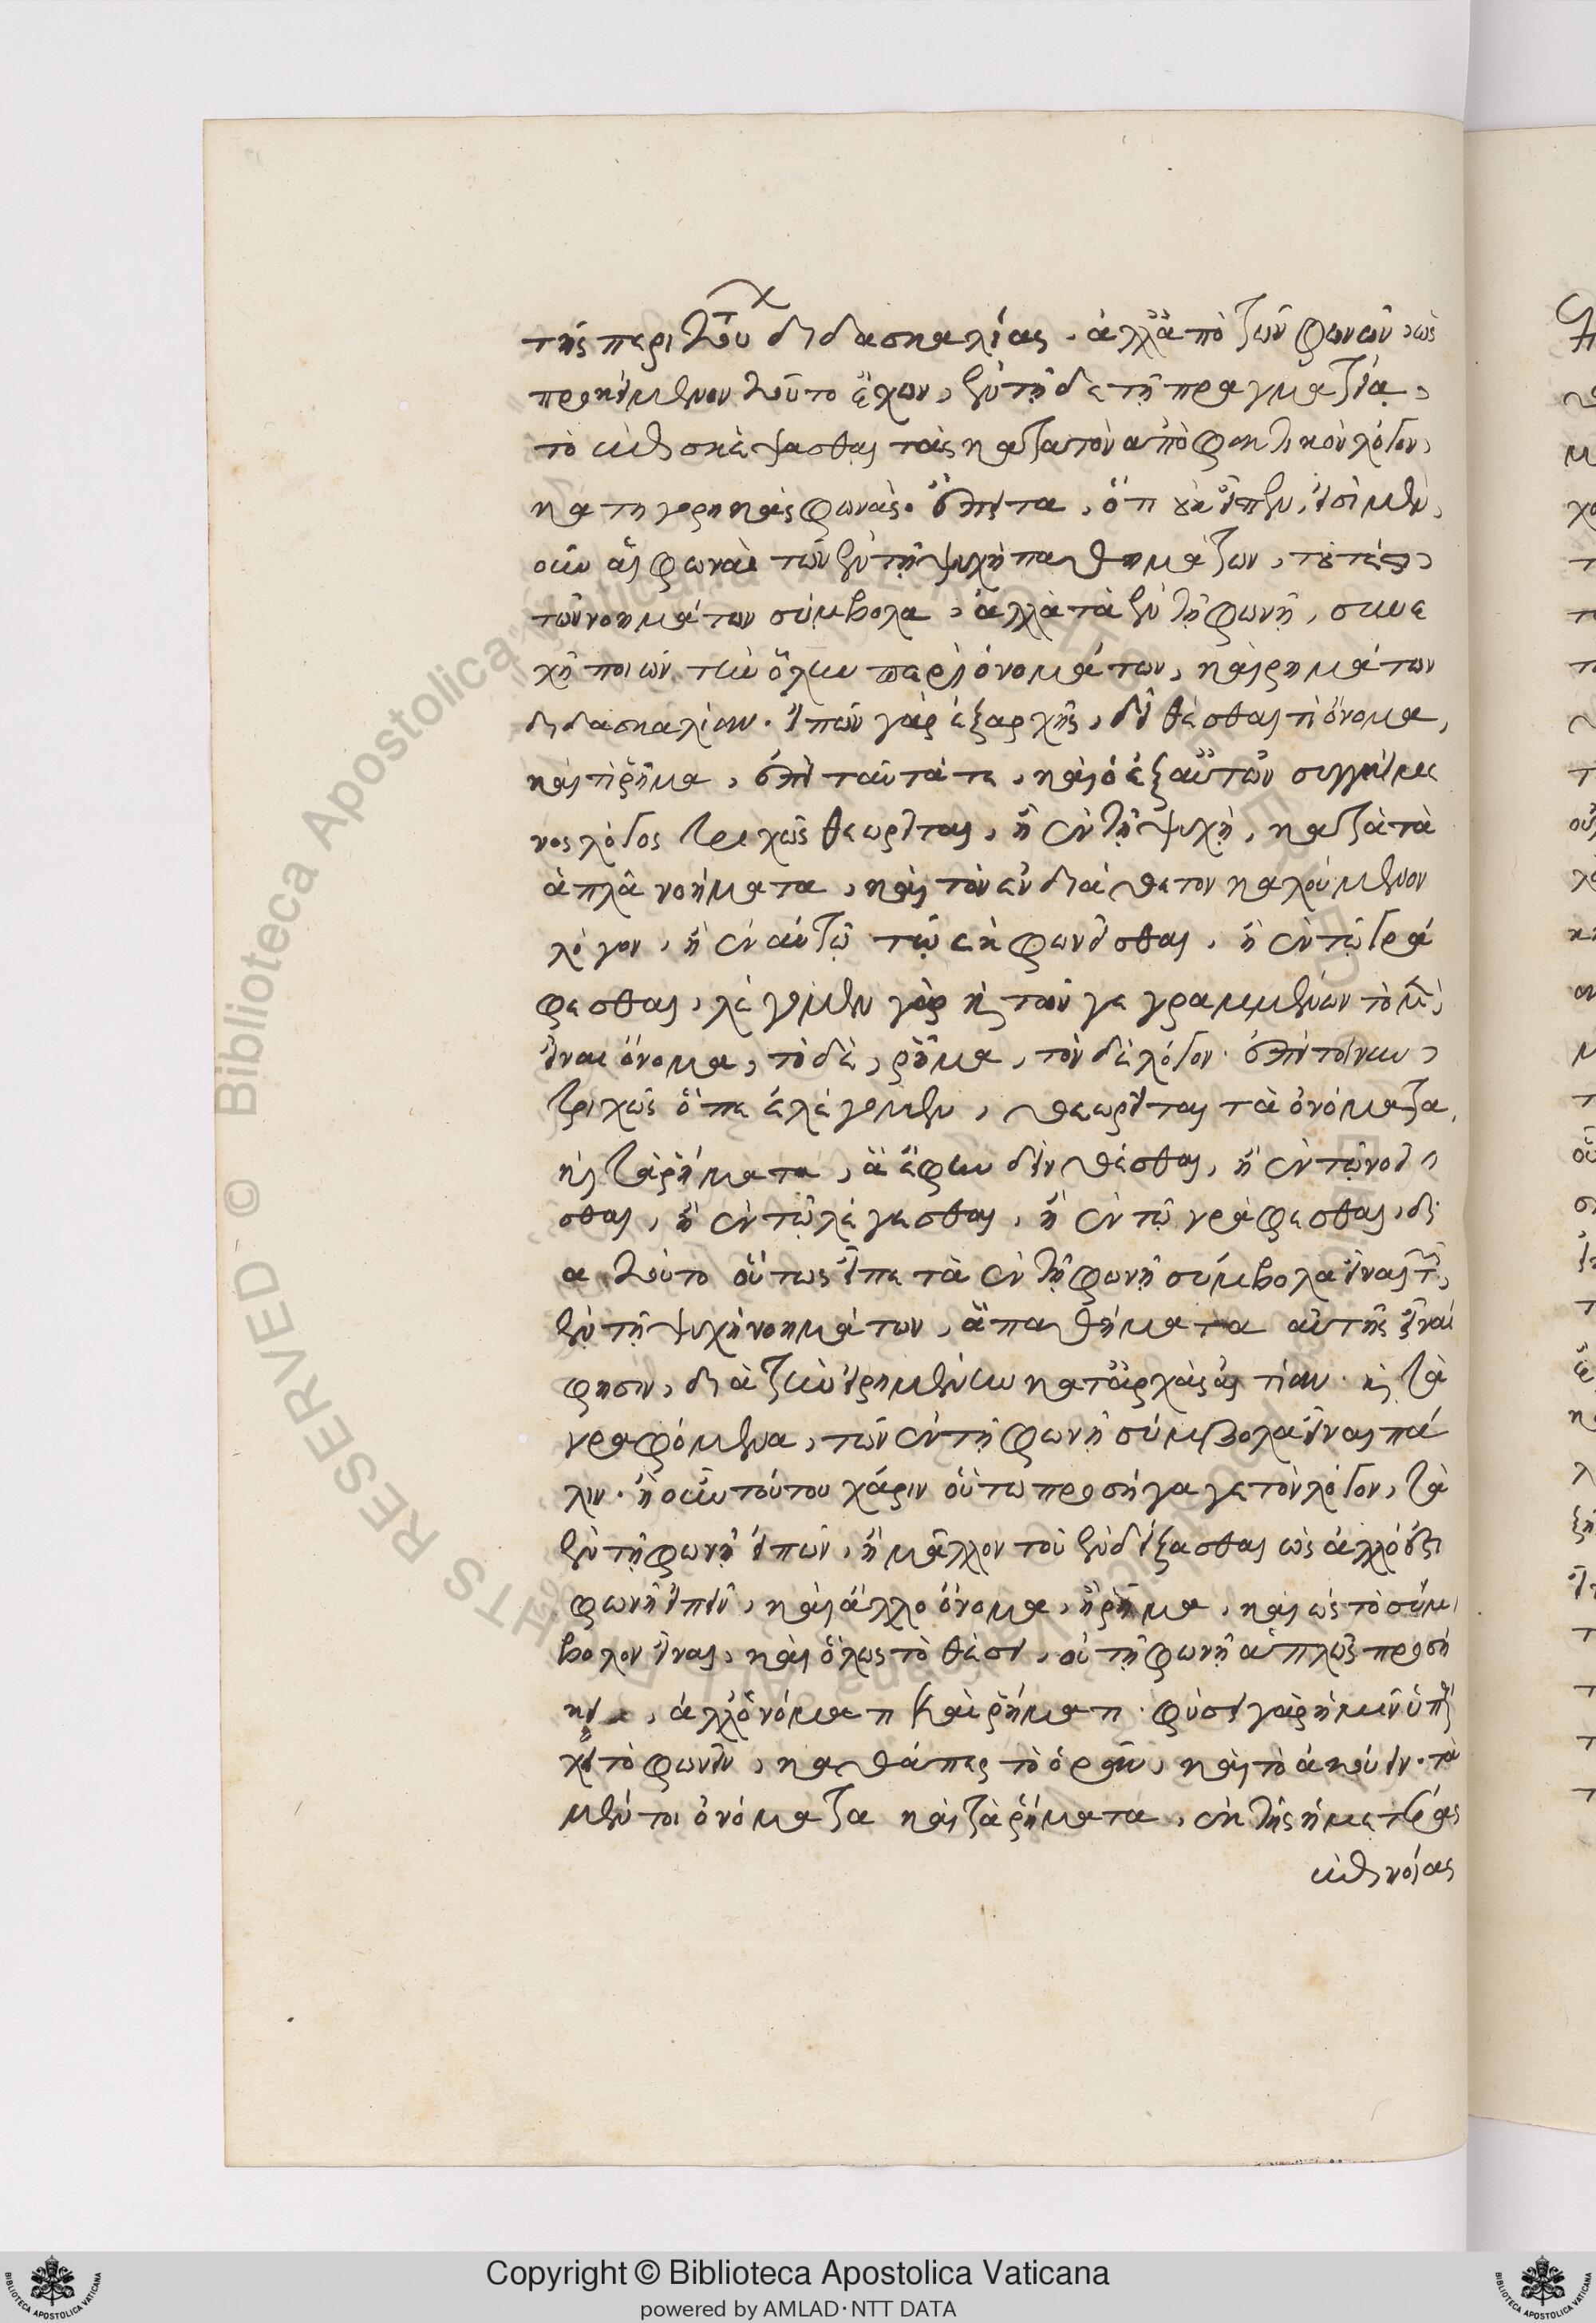 τῆς περὶ τούτου διδασκαλίας. ἀλλ' ἀπὸ τῶν φωνῶν, ὡς
προκείμενον τοῦτο ἔχων, ἐν τῇδε τῇ πραγματείᾳ,
τὸ ἐπισκέψασθαι τὰς κατὰ τὸν ἀποφαντικὸν λόγον,
κατηγορικὰς φωνάς. ἔπειτα, ὅτι οὐκ εἶπεν, εἰσὶ μὲν
οὖν αἱ φωναὶ τῶν ἐν τῇ ψυχῇ παθημάτων, τουτέστι,
τῶν νοημάτων σύμβολα, ἀλλὰ τὰ ἐν τῇ φωνῇ, συνε
χῆ ποιῶν τὴν ὅλην περὶ ὀνομάτων, καὶ ῥημάτων
διδασκαλίαν. εἰπὼν γὰρ ἐξαρχῆς, δεῖ θέσθαι τί ὄνομα,
καὶ τί ῥῆμα, ἐπεὶ ταῦτά τε, καὶ ὁ ἐξ αὐτῶν συγκείμε
νος λόγος τριχῶς θεωρεῖται, ἢ ἐν τῇ ψυχῇ, κατὰ τὰ
ἁπλᾶ νοήματα, καὶ τὸν ἐνδιάθετον καλούμενον
λόγον, ἢ ἐν αὐτῷ τῷ ἐκφωνεῖσθαι, ἢ ἐν τῷ γρά
φεσθαι, λέγομεν γὰρ καὶ τῶν γεγραμμένων τὸ μὲν,
εἶναι ὄνομα, τὸ δὲ, ῥῆμα, τὸν δὲ λόγον. ἐπεὶ τοίνυν,
τριχῶς ὅπερ ἐλέγομεν, θεωρεῖται τὰ ὀνόματα,
καὶ τὰ ῥήματα, ἃ ἔφην δεῖν θέσθαι, ἢ ἐν τῷ νοεῖ
σθαι, ἢ ἐν τῷ λέγεσθαι, ἢ ἐν τῷ γράφεσθαι, δι
α τοῦτο οὕτως εἶπε τὰ ἐν τῇ φωνῇ σύμβολα εἶναι τῶν
ἐν τῇ ψυχῇ νοημάτων, ἃ παθήματα αὐτῆς εἶναί
φησιν, διὰ τὴν εἰρημένην κατ' ἀρχὰς αἰτίαν. καὶ τὰ
γραφόμενα, τῶν ἐν τῇ φωνῇ σύμβολα εἶναι πά
λιν. ἢ οὖν τούτου χάριν οὕτω προσήγαγε τὸν λόγον, τὰ
ἐν τῇ φωνῇ εἰπών, ἢ μᾶλλον τοῦ ἐνδείξασθαι ὡς ἄλλο ἐστὶ
φωνὴν εἰπεῖν, καὶ ἄλλο ὄνομα, ἢ ῥῆμα, καὶ ὡς τὸ σύμ
βολον εἶναι, καὶ ὅλως τὸ θέσει, οὐ τῇ φωνῇ ἁπλῶς προσή
κει, ἀλλ' ὀνόματι καὶ ῥήματι. φύσει γὰρ ἡμῖν ὑπῆρ
χε τὸ φωνεῖν, καθάπερ τὸ ὁρᾶν, καὶ τὸ ἀκούειν. τὰ
μέντοι ὀνόματα καὶ τὰ ῥήματα, ἐκ τῆς ἡμετέρας
ἐπινοίας
Copyright © Biblioteca Apostolica Vaticana
powered by AMLAD·NTT DATA